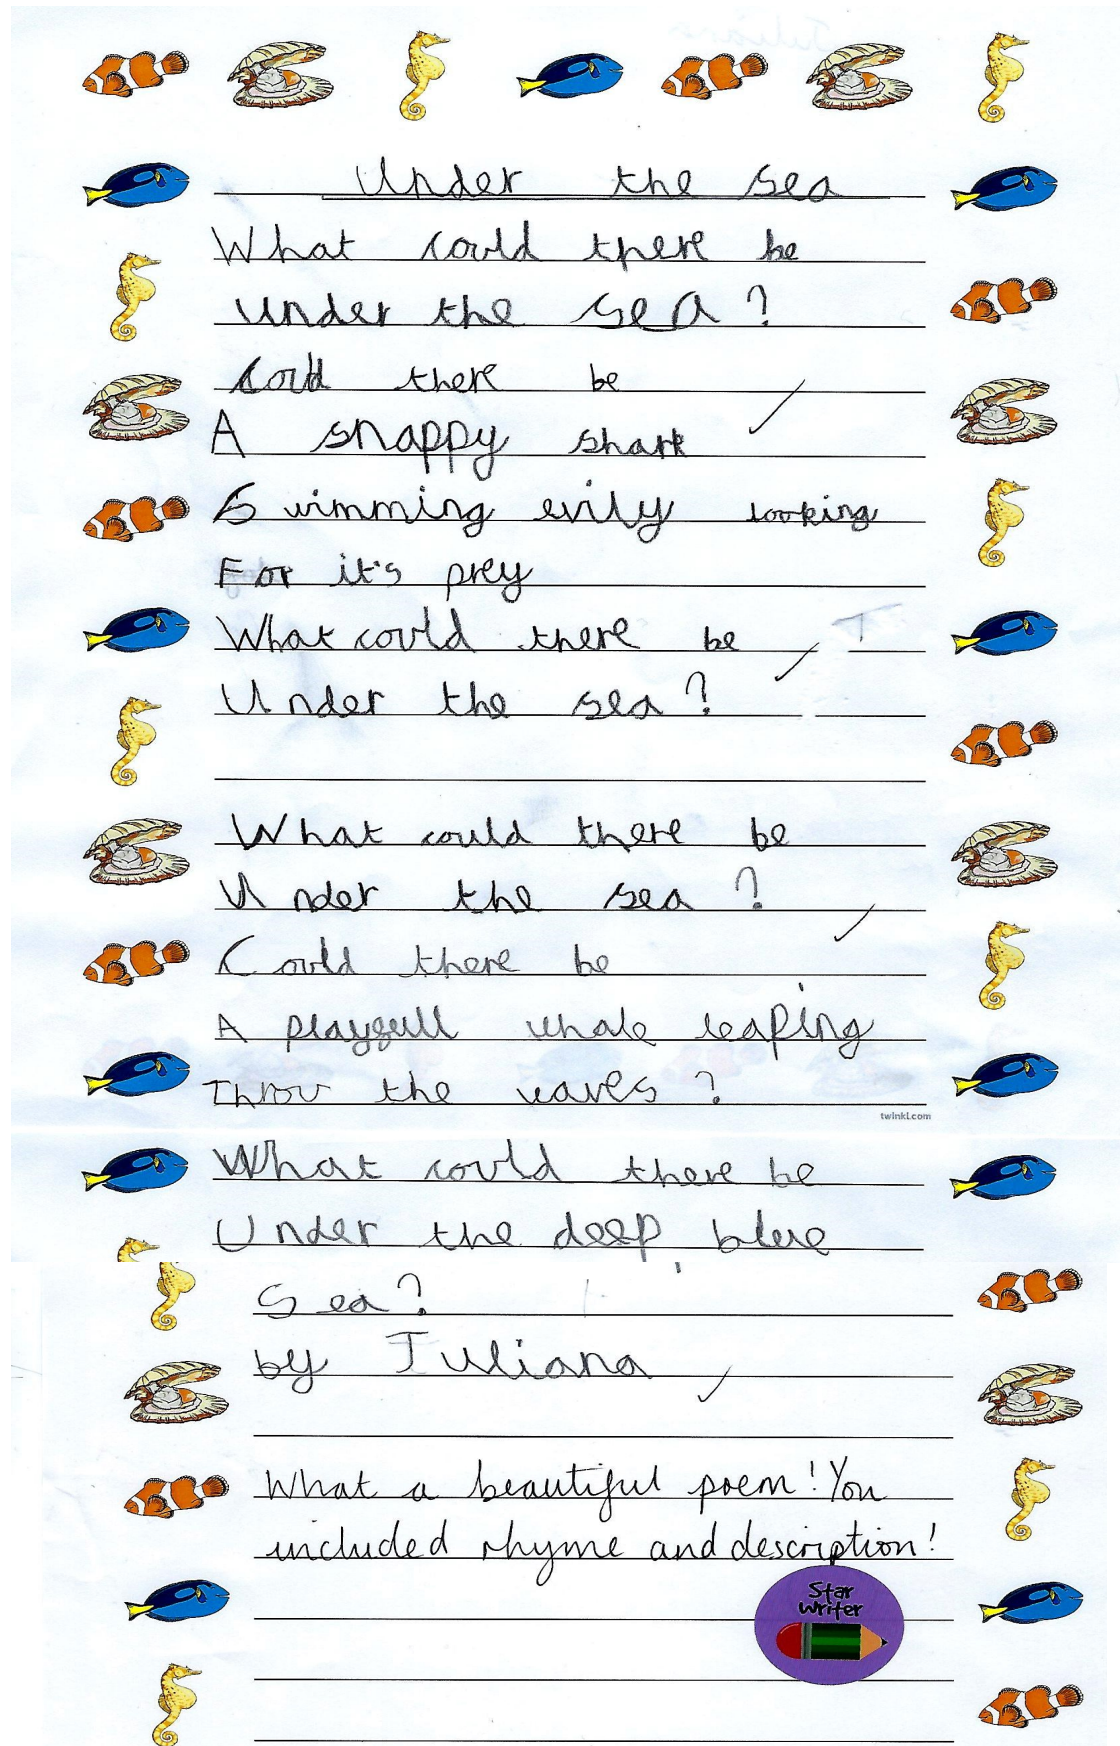 Under the sea
What could there be
under the sea?
Could there be
A snappy shark
Swimming evily looking
For it's prey
What could there be
Under the sea?
What could there be
Under the sea?
Could there be
A playfull whale leaping
Throu the waves?
twinkl.com
What could there be
Under the deep blue
Sea?
by Iuliana
What a beautiful poem! You
included rhyme and description!
Star
Writer